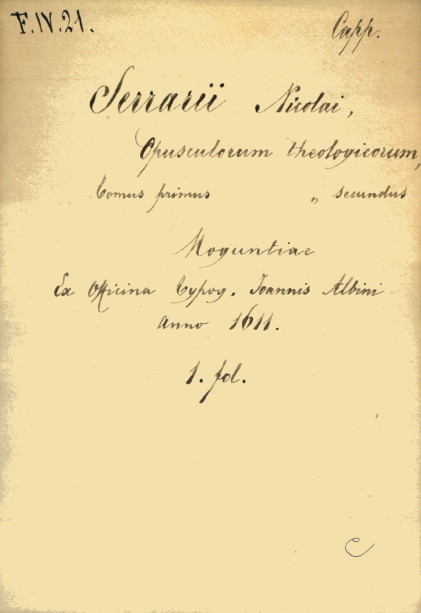 F.IV.21. Capp.
Serrarii Nicolai,
Opusculorum theologicorum,
Tomus primus „ secundus
Moguntiae
Ex Officina Typog. Joannis Albini
anno 1611.
1. fol.
C